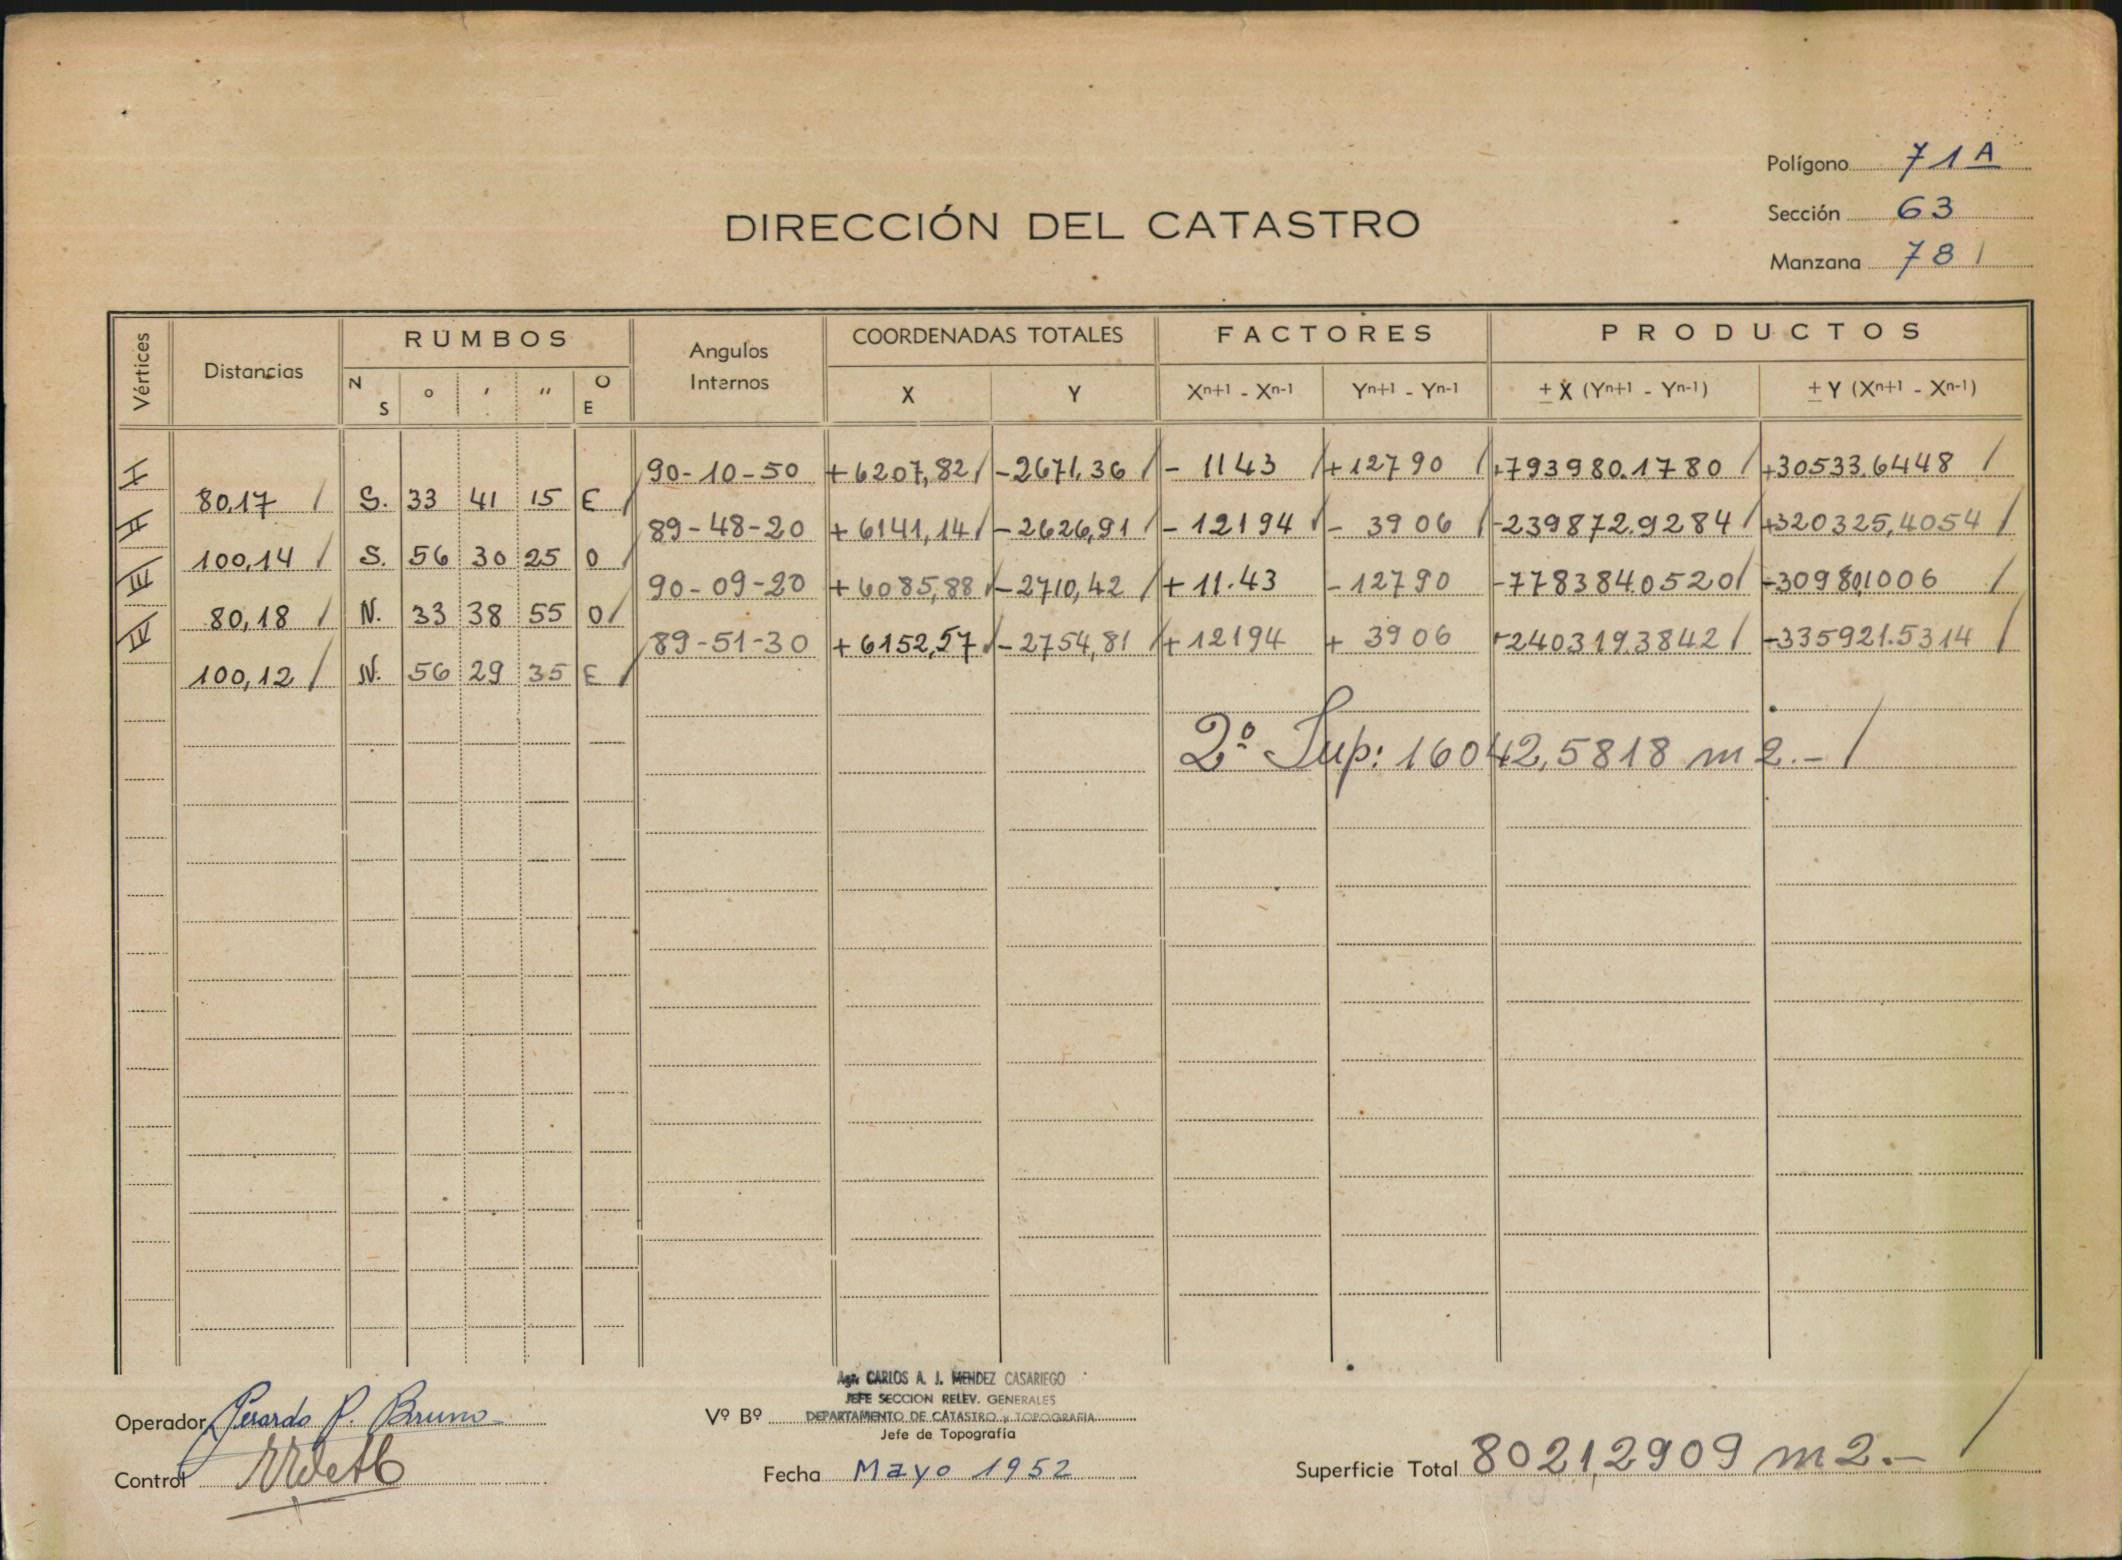 Polígono 71A
Sección 63
Manzana 78
DIRECCIÓN DEL CATASTRO
Vértices Distancias RUMBOS Angulos Internos COORDENADAS TOTALES FACTORES PRODUCTOS
N S ° ' " O E X Y Xn+1 - Xn-1 Yn+1 - Yn-1 ± X (Yn+1 - Yn-1) ± Y (Xn+1 - Xn-1)
I 90-10-50 +6207,82 -2671,36 - 1143 +12790 +793980.1780 +30533.6448
80,17 S. 33 41 15 E
II 89-48-20 +6141,14 -2626,91 - 12194 - 3906 -239872.9284 +320325,4054
100,14 S. 56 30 25 O
III 90-09-20 +6085,88 -2710,42 + 11.43 -12790 -778384.0520 -30980,1006
80,18 N. 33 38 55 O
IV 89-51-30 +6152,57 -2754,81 +12194 + 3906 +240319.3842 -335921.5314
100,12 N. 56 29 35 E
2º Sup: 16042,5818 m2.-
Agr. CARLOS A. J. MENDEZ CASARIEGO
JEFE SECCION RELEV. GENERALES
Operador Gerardo P. Bruno Vº Bº DEPARTAMENTO DE CATASTRO y TOPOGRAFIA
Jefe de Topografía
Control Fecha Mayo 1952 Superficie Total 8021,2909 m2.-